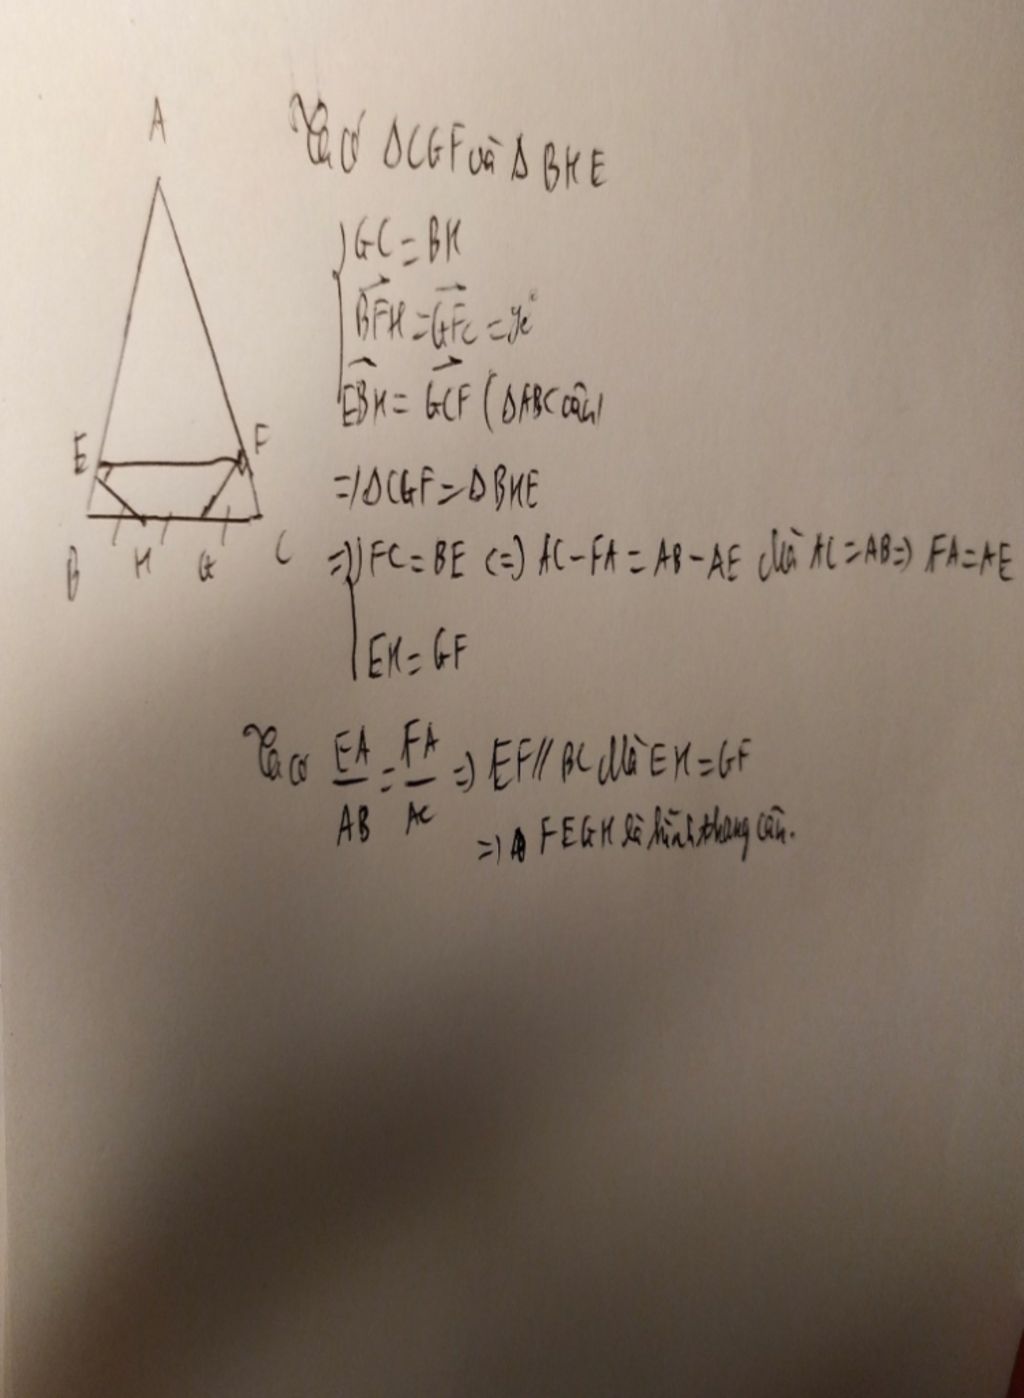 A
Ta có ΔCGF và Δ BHE
GC = BH
BFH = GFC = 90°
EBH = GCF (ΔABC cân)
E
F
=) ΔCGF = ΔBHE
B H G C
=) FC = BE (=) AC - FA = AB - AE Mà AC = AB =) FA = AE
EH = GF
Ta có EA/AB = FA/AC =) EF // BC Mà EH = GF
=) FEGH là hình thang cân.